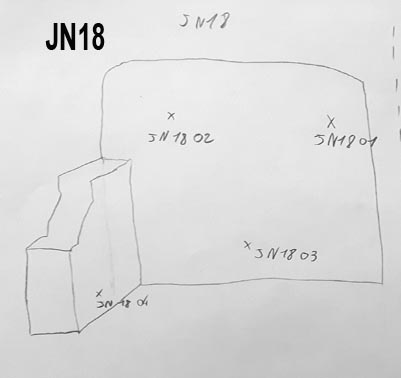 JN18
JN18
JN18 02
JN18 01
JN18 03
JN18 04